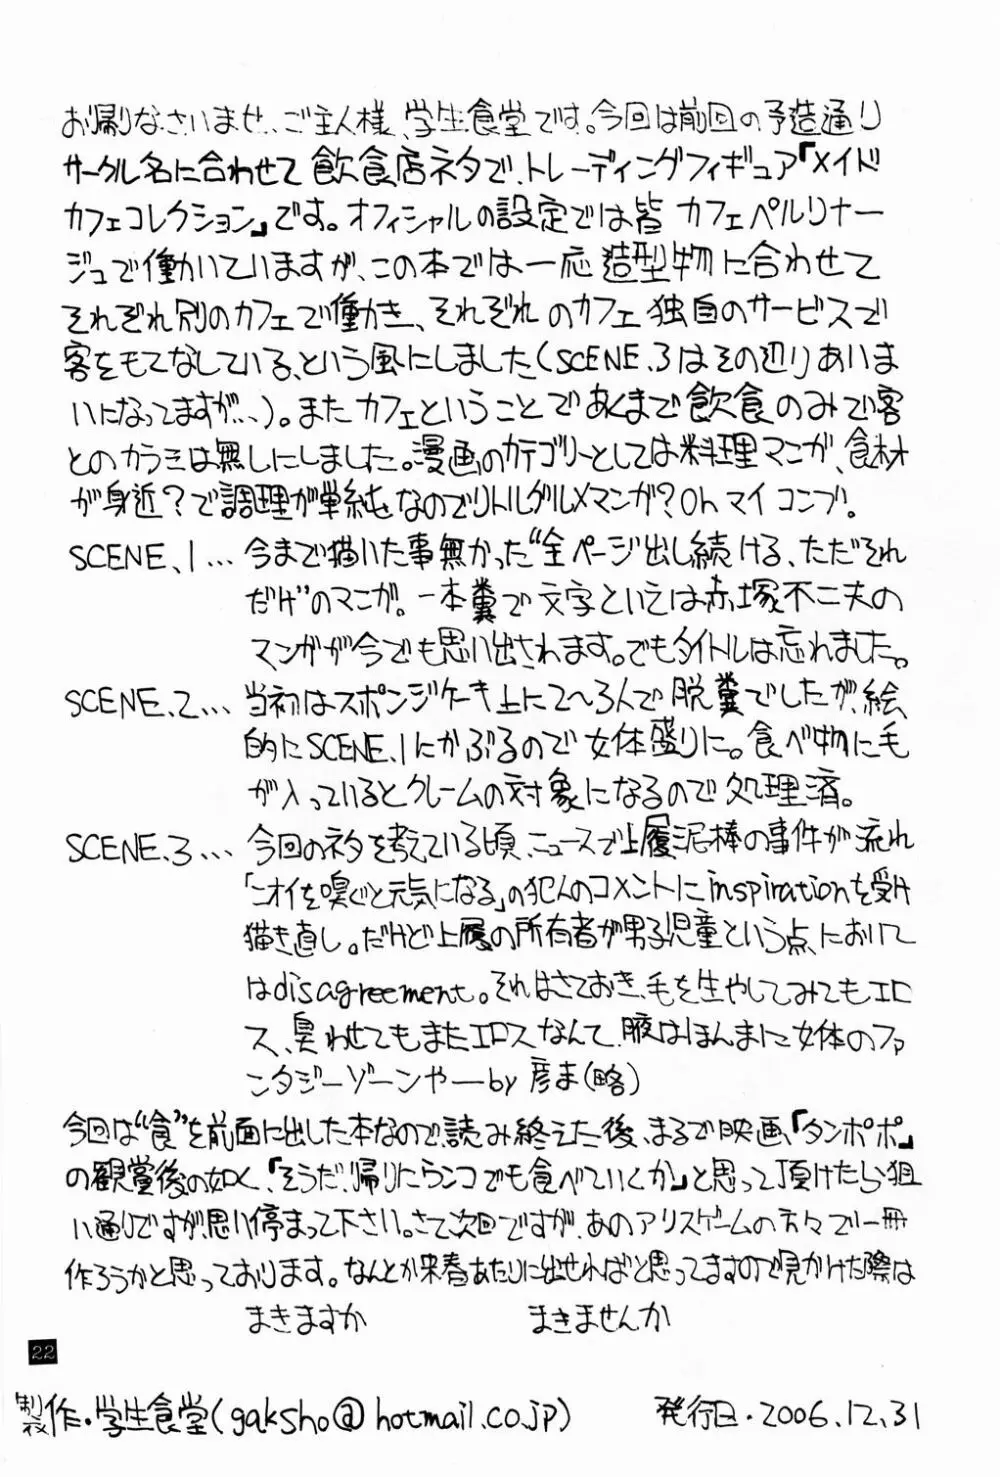 お帰りなさいませ、ご主人様、学生食堂です。今回は前回の予告通り
サークル名に合わせて飲食店ネタで、トレーディングフィギュア『メイド
カフェコレクション』です。オフィシャルの設定では皆カフェペルリナー
ジュで働いていますが、この本では一応造型物に合わせて
それぞれ別のカフェで働き、それぞれのカフェ独自のサービスで
客をもてなしている、という風にしました(SCENE.3はその辺りあいま
いになってますが…)。またカフェということであくまで飲食のみで客
とのカラミは無しにしました。漫画のカテゴリーとしては料理マンガ、食材
が身近?で調理が単純なのでリトルグルメマンガ?Ohマイコンブ。
SCENE.1… 今まで描いた事無かった“全ページ出し続ける、ただそれ
だけ”のマンガ。一本糞で文字といえば赤塚不二夫の
マンガが今でも思い出されます。でもタイトルは忘れました。
SCENE.2… 当初はスポンジケーキ上に2〜3人で脱糞でしたが、絵
的にSCENE.1にかぶるので女体盛りに。食べ物に毛
が入っているとクレームの対象になるので処理済。
SCENE.3… 今回のネタを考えている頃、ニュースで上履泥棒の事件が流れ
「ニオイを嗅ぐと元気になる」の犯人のコメントにinspirationを受け
描き直し。だけど上履の所有者が男子児童という点において
はdisagreement。それはさておき、毛を生やしてみてもエロ
ス、臭わせてもまたエロスなんて、腋はほんまに女体のファ
ンタジーゾーンやーby彦ま(略)
今回は“食”を前面に出した本なので、読み終えた後、まるで映画、『タンポポ』
の観賞後の如く、『そうだ、帰りにウンコでも食べていくか』と思って頂けたら狙
い通りですが、思い停まって下さい。さて次回ですが、あのアリスゲームの方々で一冊
作ろうかと思っております。なんとか来春あたりに出せればと思ってますので見かけた際は
まきますか まきませんか
22
製作・学生食堂(gaksho@hotmail.co.jp) 発行日・2006.12.31